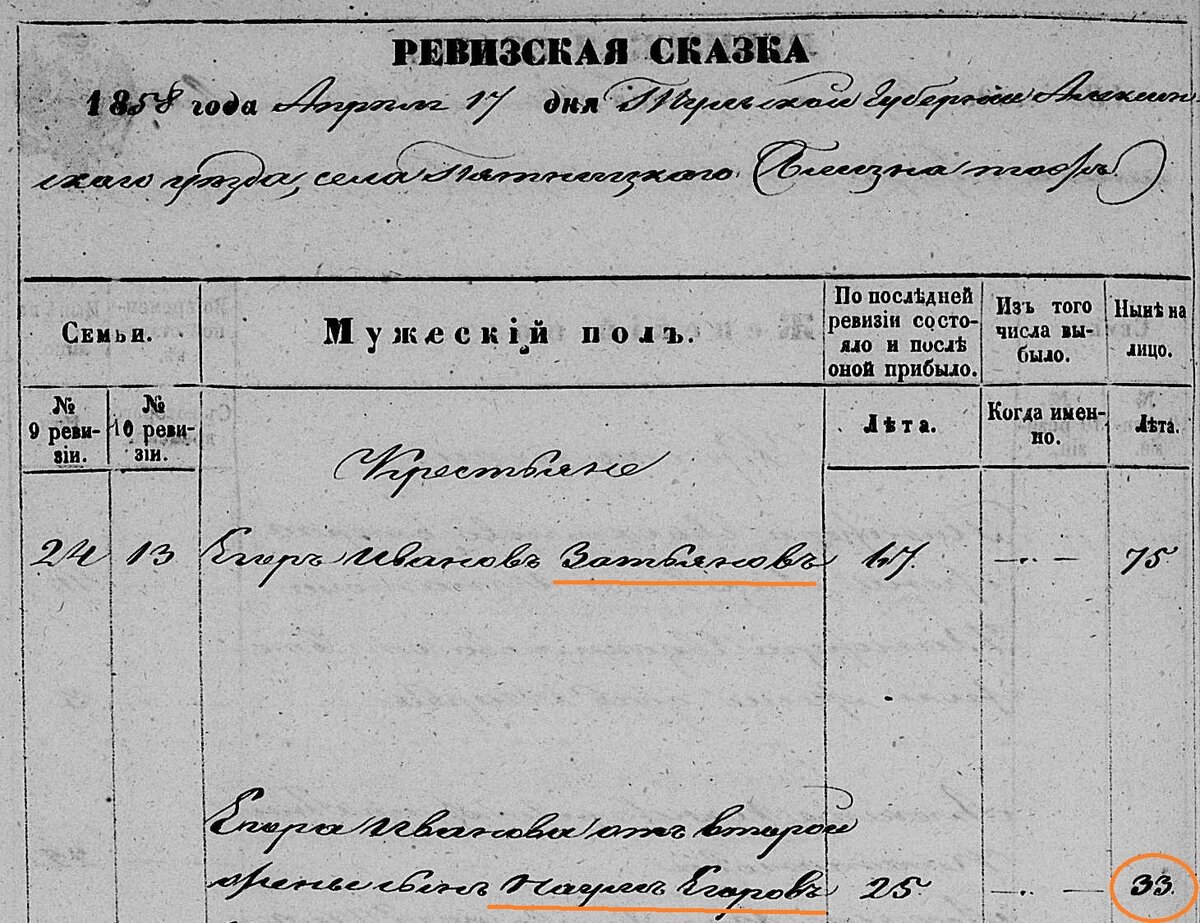 РЕВИЗСКАЯ СКАЗКА
1858 года Апреля 17 дня Тульской Губернии Алексин-
скаго уезда, села Пятницкаго (Близна тожъ)
Семьи.
Мужескій полъ.
По послѣдней ревизіи состояло и послѣ оной прибыло.
Изъ того числа выбыло.
Нынѣ на лицо.
№ 9 ревизіи.
№ 10 ревизіи.
Лѣта.
Когда именно.
Лѣта.
Крестьяне
24 13 Егоръ Ивановъ Затьяковъ 67. —..— 75
Егора Иванова отъ второй
жены сынъ Наумъ Егоровъ 25 —..— 33.